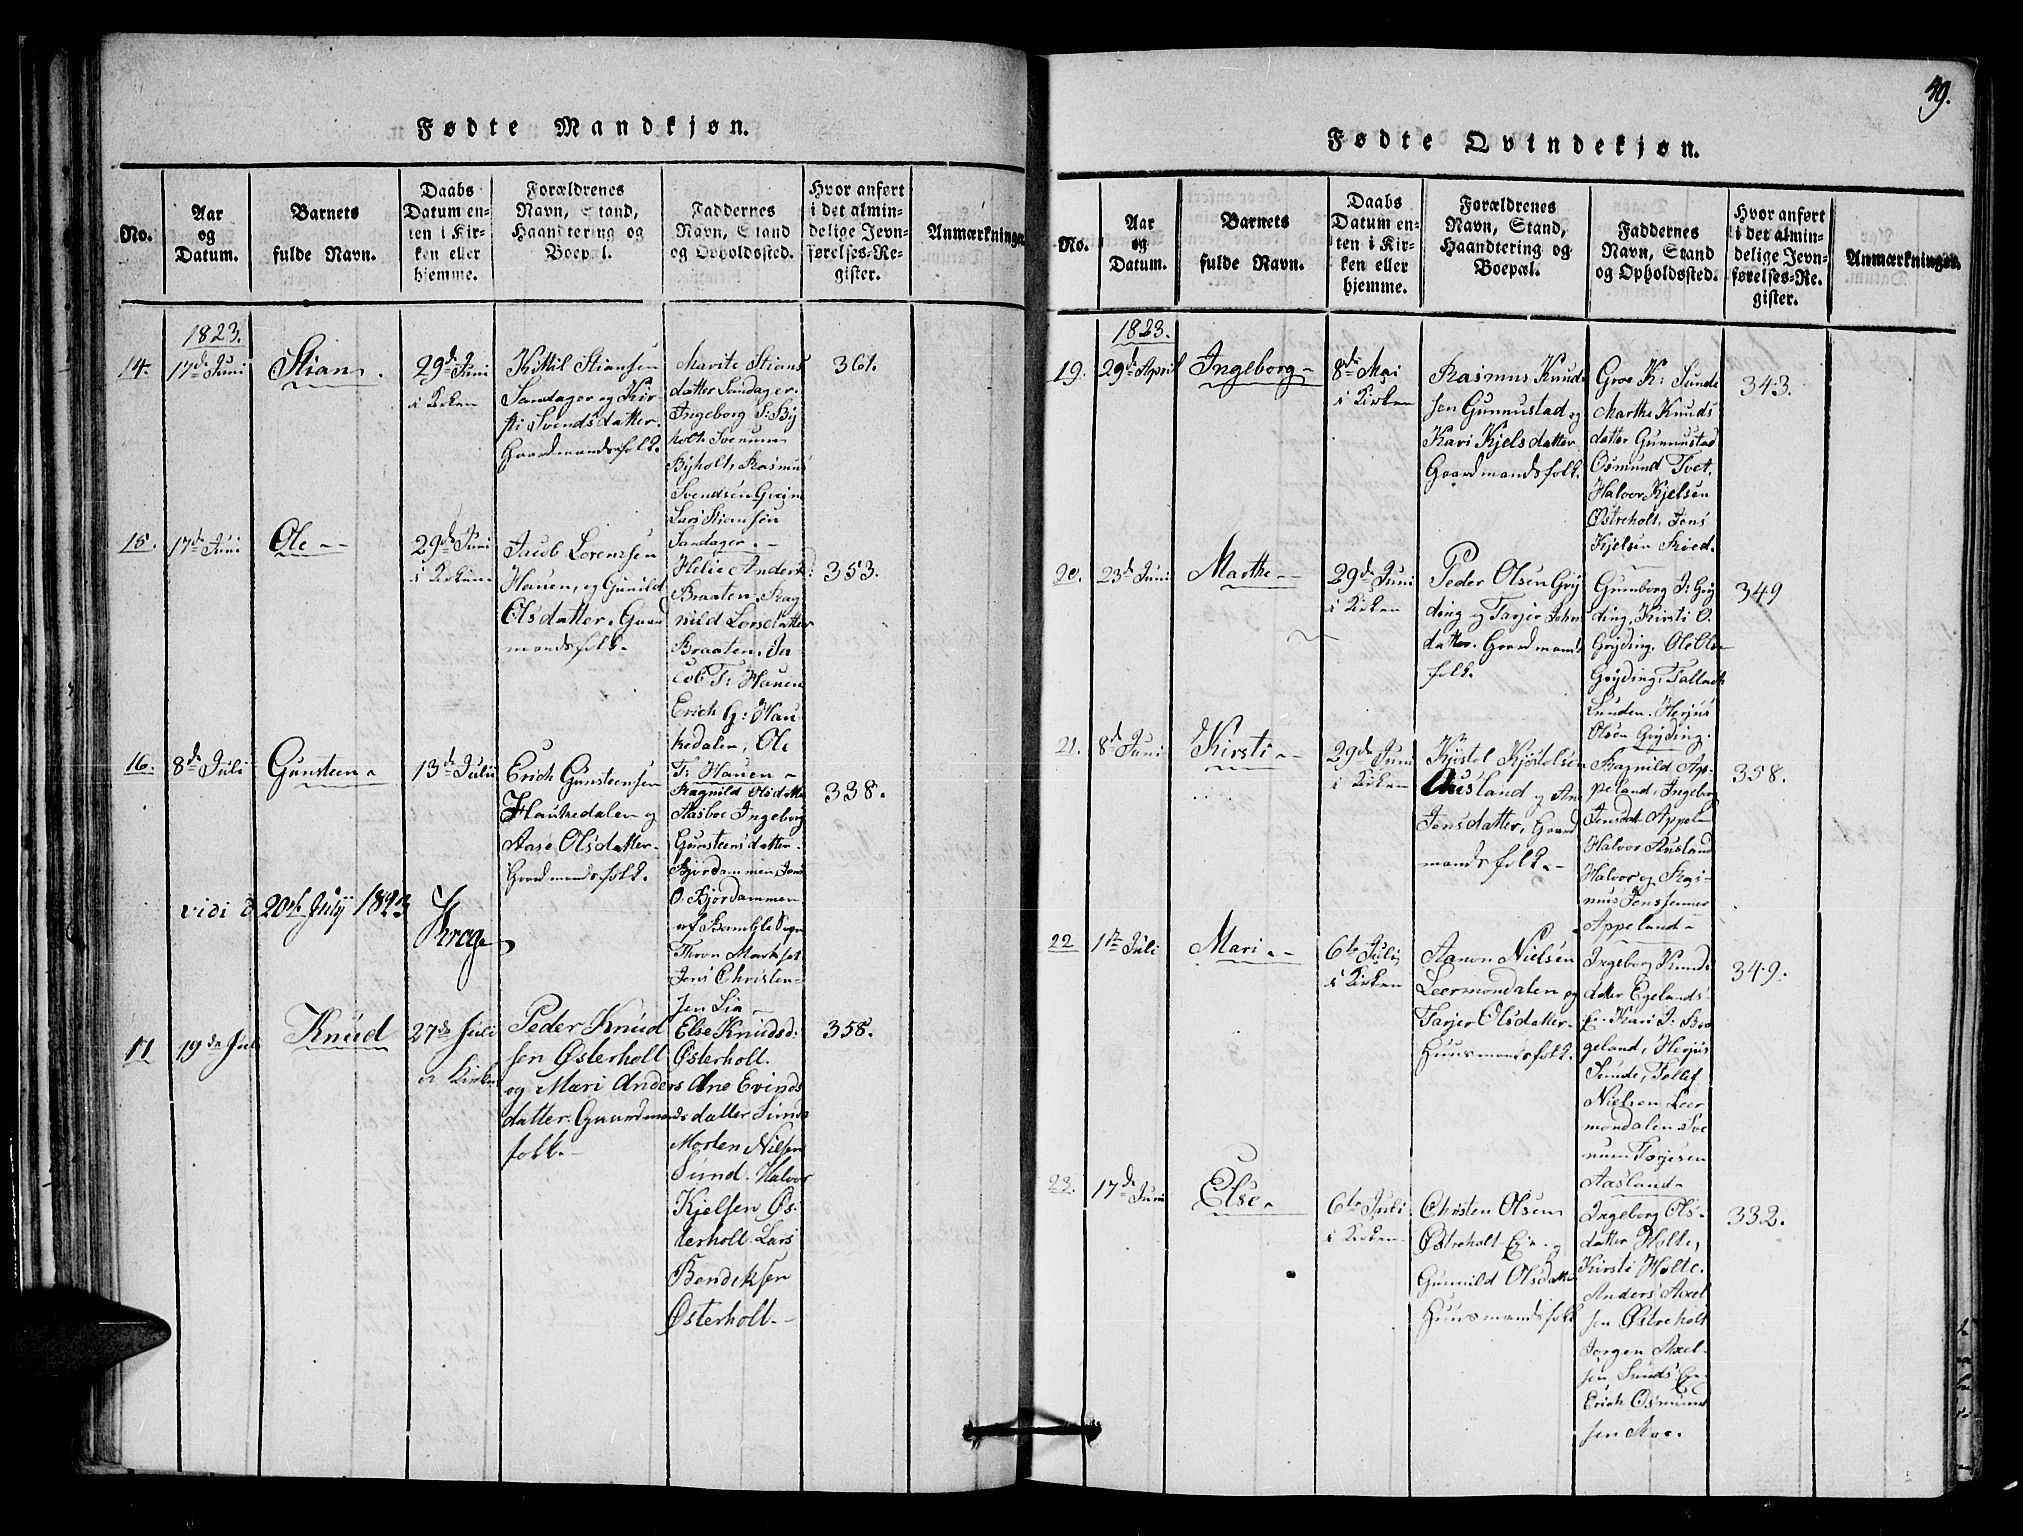 Fødte Mandkjøn.
No.
Aar
og
Datum.
Barnets
fulde Navn.
Daabs
Datum en-
ten i Kir-
ken eller
hjemme.
Forældrenes
Navn, Stand,
Haandtering og
Boepæl.
Faddernes
Navn, Stand
og Opholdssted.
Hvor anført
i det almin-
delige Jevn-
førelses-Re-
gister.
Anmærkninger.
1823.
14.
17de Juni
Stian.
29de Juni
i Kirken
Kittil Stiansen
Sandager og Kir-
sti Svendsdatter.
Gaardmandsfolk.
Marite Stians
datter Sandager.
Ingeborg S: Bÿ
holt. Svenum
Bÿholt, Rasmus
Svendsen
Lars Stiansen
Sandager.
361.
15.
17de Juni
Ole
29de Juni
i Kirken.
Jacob Lorenssen
Hauen, og Gunild
Olsdatter. Gaard
mandsfolk.
Helie Andersd:
Braaten. Rag
nild Lorsdatter
Braaten. Ja-
cob T: Hauen
Erich G: Hau-
kedalen, Ole
T: Hauen
353.
16.
8de Juli
Gunsteen
13de Julii
Erich Gunsteensen
Haukedalen og
Aase Olsdatter.
Gaardmandsfolk.
Ragnild Olsdatter
Aasboe Ingeborg
Gunsteensdatter.
Bjordammen, Jens
O. Bjordammen
af Bamble Sogn
Thron
Jens Christen-
sen Lia
338.
vidi d 20de Julÿ 1823
Krog
17
19de Juli
Knud
27de Juli
i Kirken
Peder Knud
sen Østerholt
og Mari Anders
datter. Gaardmands
folk.
Else Knudsd:
Østerholt.
Ane Evinds
datter Sunde
Morten Nilsen
Sund. Halvor
Kjelsen Øs-
terholt. Lars
Bendiksen
Østerholt.
358.
39.
Fødte Qvindekjøn.
No.
Aar
og
Datum.
Barnets
fulde Navn.
Daabs
Datum en-
ten i Kir-
ken eller
hjemme.
Forældrenes
Navn, Stand,
Haandtering og
Boepæl.
Faddernes
Navn, Stand
og Opholdssted.
Hvor anført
i det almin-
delige Jevn-
førelses-Re-
gister.
Anmærkninger.
1823.
19.
29de April
Ingeborg
8de Mai
i Kirken
Rasmus Knud-
sen Gunnustad og
Kari Kjelsdatter
Gaardmandsfolk.
Groe K: Sunde
Marthe Knuds
datter Gunnustad
Osmund Tvet.
Halvor Kjelsen
Østreholt. Jens
Kjelsen
343.
20.
23de Juni
Marthe
29de Juni
i Kirken
Peder Olsen Grÿ
ding og Tarjer John
datter. Gaardmands
folk.
Gunborg J: Grÿ
ding, Kirsti O.
Grÿding. Ole Olsen
Grÿding, Tallach
Lunden. Herjus
Olsen Grÿding.
349
21.
8de Juni
Kirsti
29de Juni
i Kirken
Kjøstel Kjøstelsen
Ausland og Ane
Jensdatter, Gaard
mandsfolk.
Ragnild Ap-
peland, Ingeborg
Jensdat Appeland
Halvor Ausland
Halvor og Ras-
mus Jenssenner
Appeland
358.
22
1ste Juli
Mari
6te Juli
i Kirken
Aanon Nielsen
Leermondalen og
Tarjer Olsdatter
Huusmandsfolk.
Ingeborg Knuds
datter Egelands-
Ei. Kari J: Bro
geland, Herjus
Sunde, Tollef
Nielsen Leer
mondalen Sve
num Terjesen
Aasland
349.
23.
17de Juni
Else
6te Juli
i Kirken
Christen Olsen
Østreholt-Eje og
Gunnild Olsdatter
Huusmandsfolk
Ingeborg Ols-
datter Holte,
Kirsti Holte.
Anders Axel
sen Østreholt
Jørgen Axel-
sen, Sunds Eje
Erich Osmund
sen Aoe.
332.